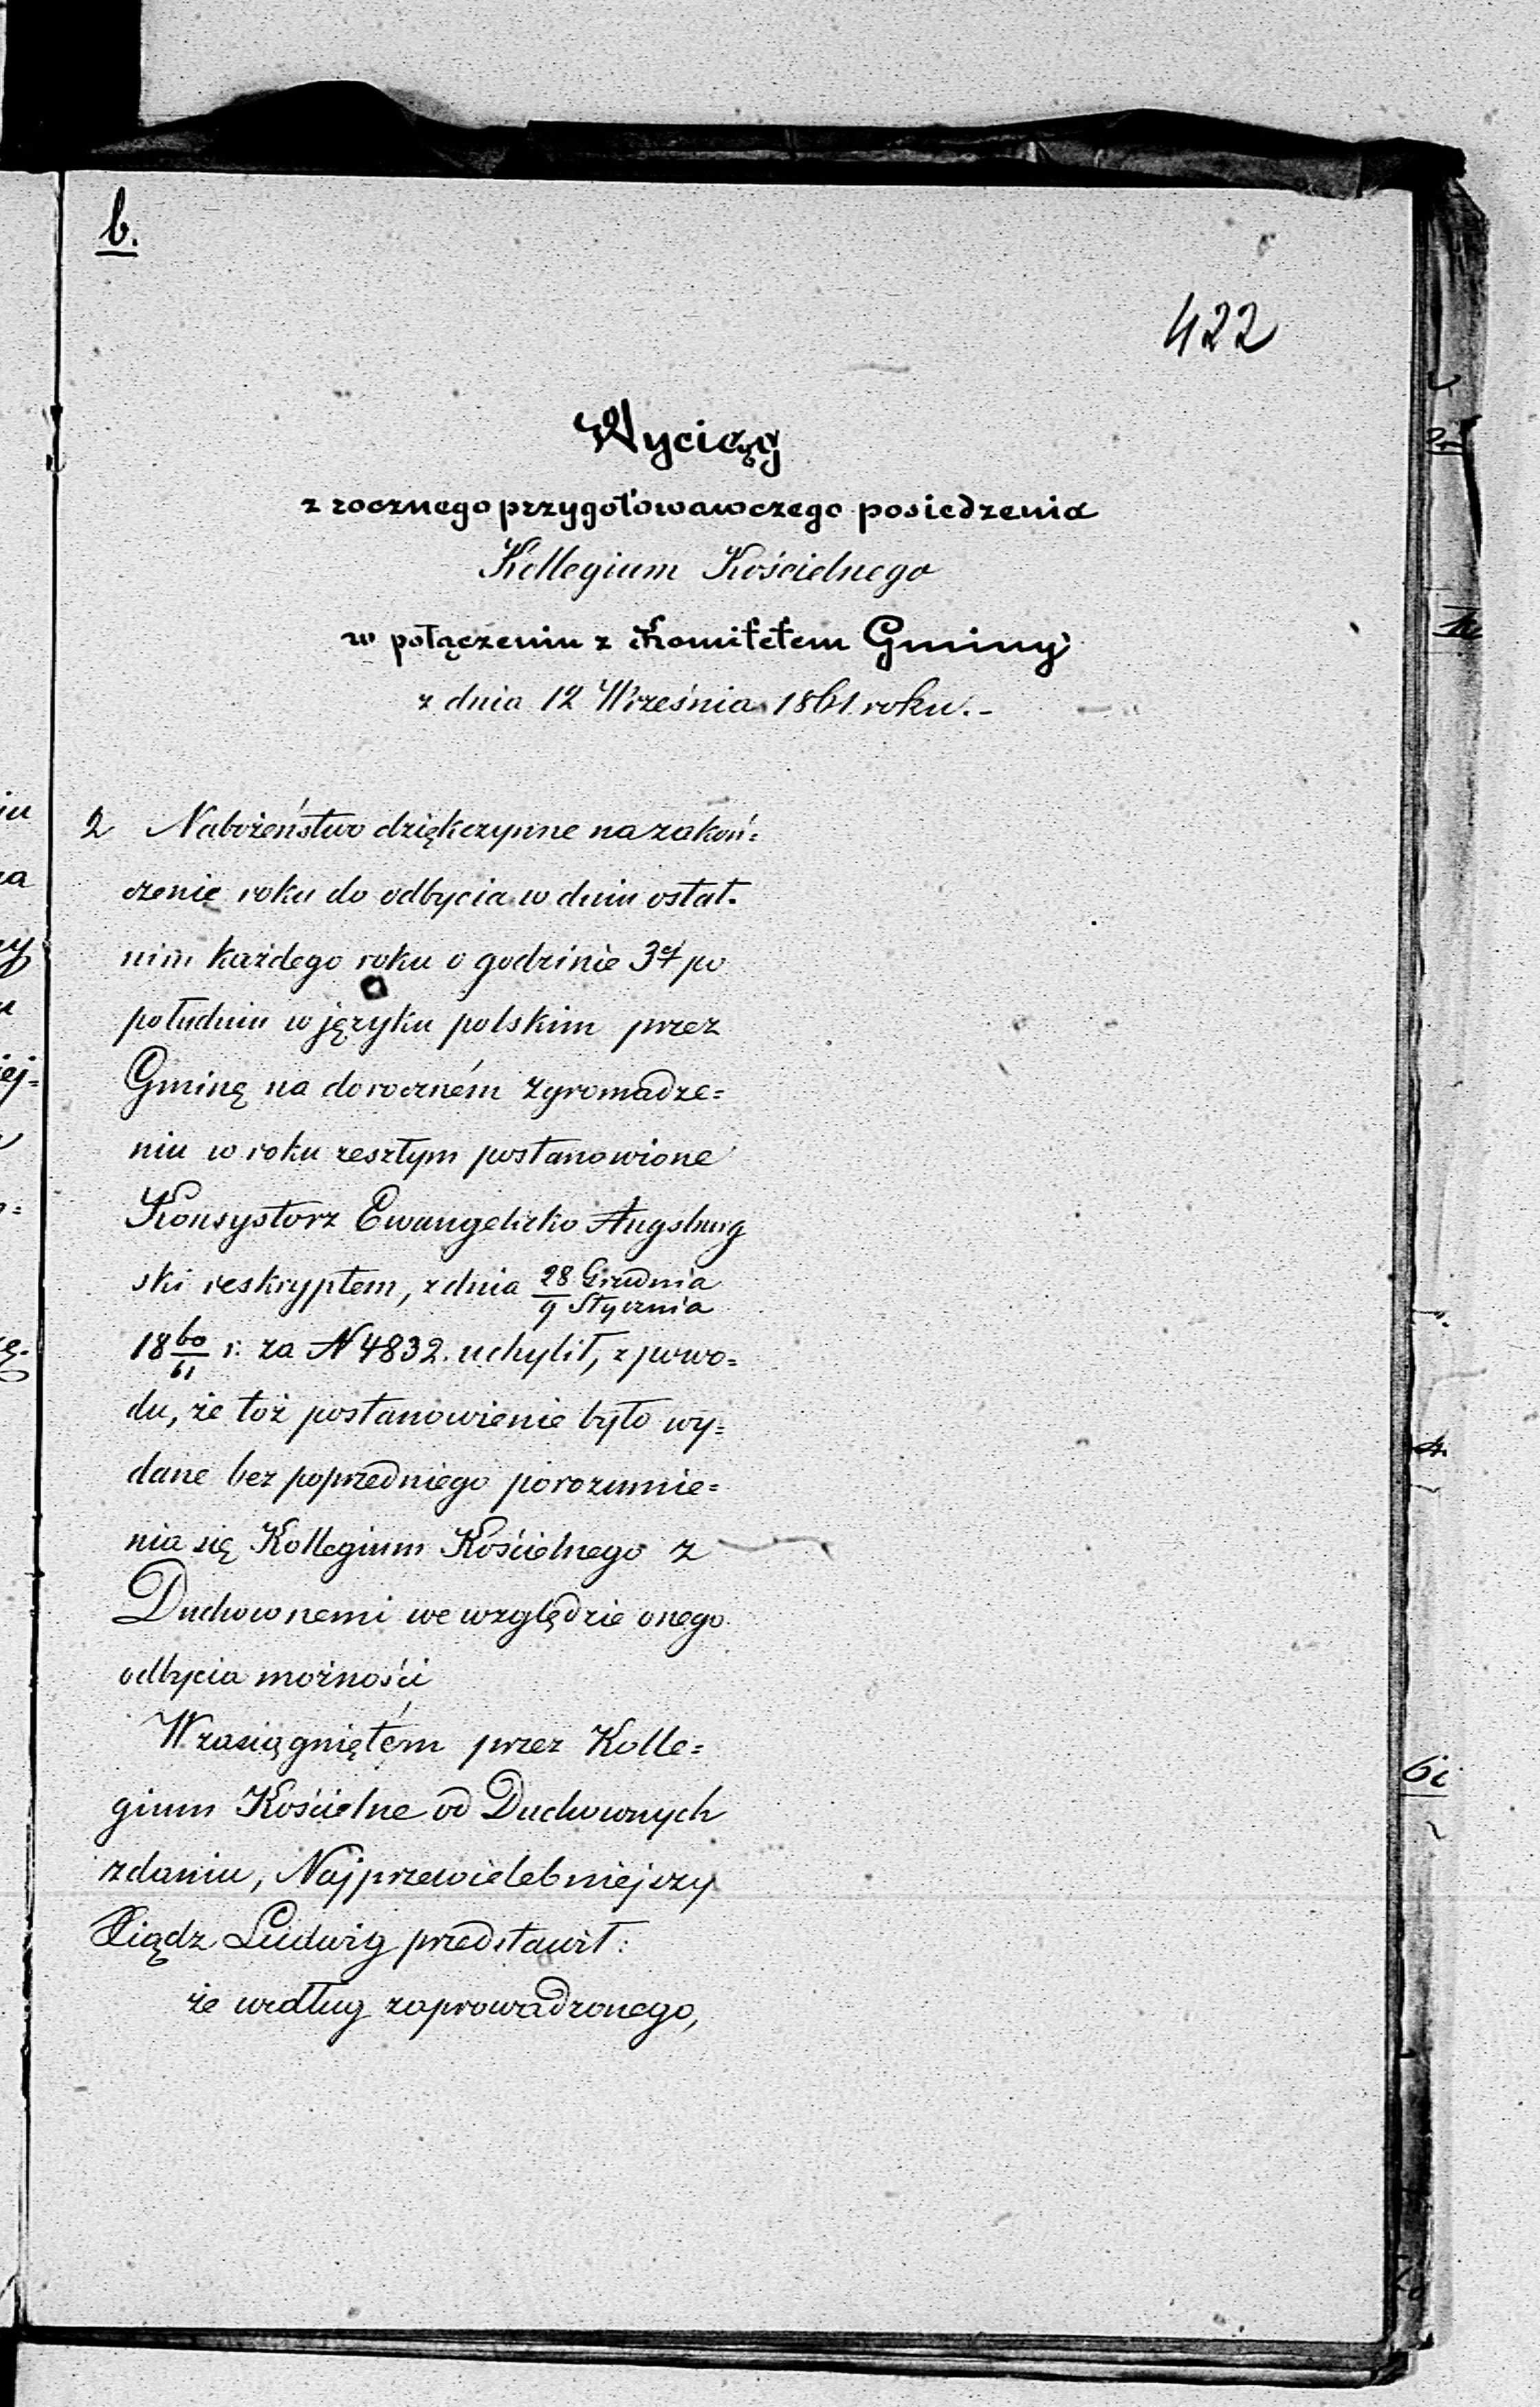 b.
422
Wyciąg
z rocznego przygotowawczego posiedzenia
Kollegium Kościelnego
w połączeniu z Komitetem Gminy
z dnia 12 Września 1861 roku.-
2 Nabożeństwo dziękczynne na zakoń=
czenie roku do odbycia w dniu ostat.
nim każdego roku o godzinie 3ej po
południu w języku polskim przez
Gminę na doroczném zgromadze=
niu w roku zeszłym postanowione
Konsystorz Ewangelicko Augsburg
ski reskryptem, z dnia 28 Grudnia / 9 Stycznia
18 60/61 r: za N 4832. uchylił, z powo=
du, że toż postanowienie było wy=
dane bez poprzedniego porozumie=
nia się Kollegium Kościelnego z
Duchownemi we względzie onego
odbycia możności
W zasiągniętém przez Kolle=
gium Kościelne od Duchownych
zdaniu, Najprzewielebniejszy
Xiądz Ludwig przedstawił:
że według zaprowadzonego,